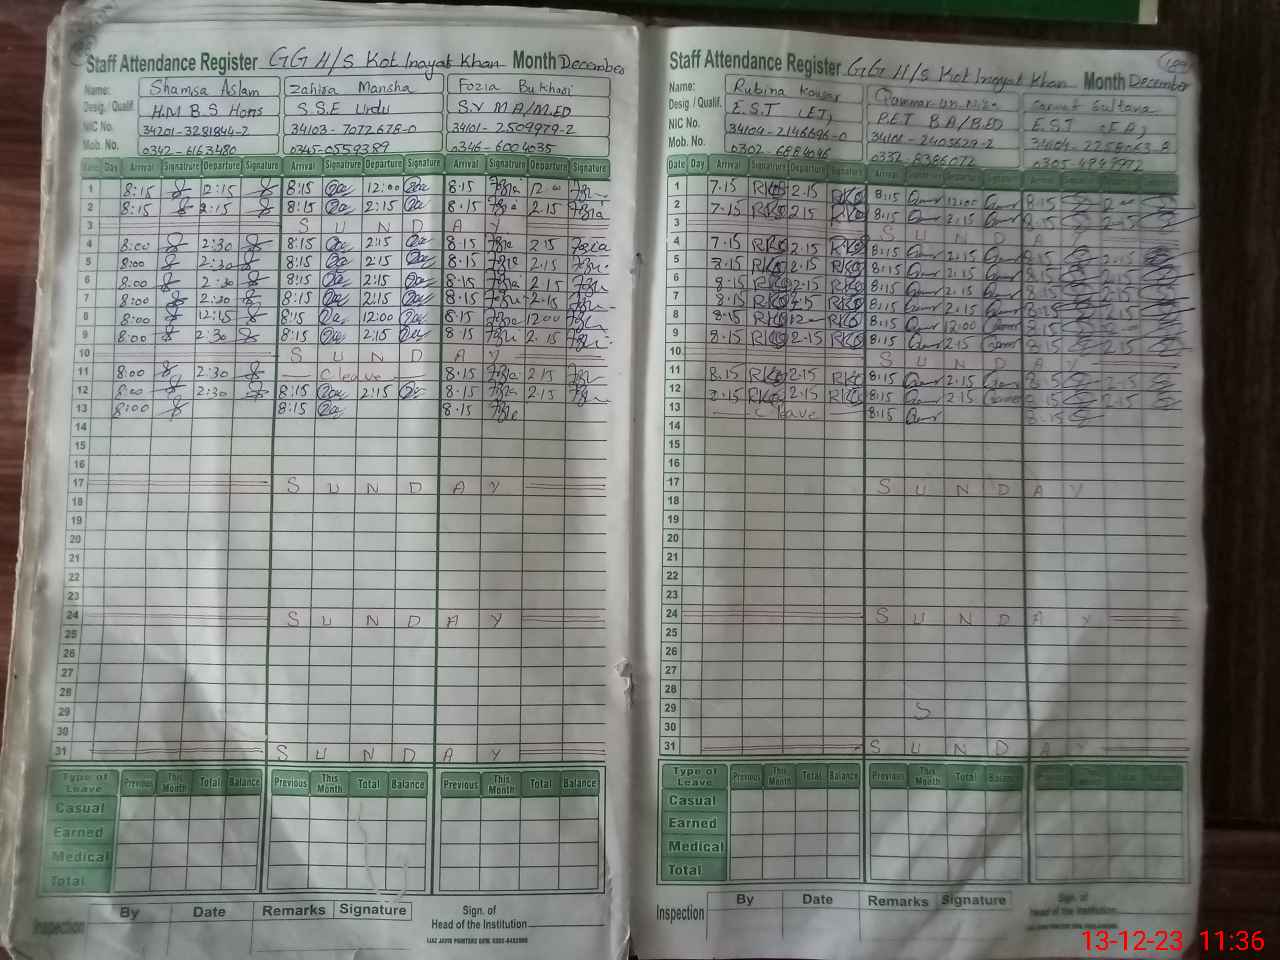 Staff Attendance Register GG H/S Kot Inayat Khan Month December
Name: Shamsa Aslam Zahira Mansha Fozia Bukhari
Desig./Qualif. H.M B.S Hons S.S.E Urdu S.V M.A/M.ED
NIC No. 34201-3281844-2 34103-7072678-0 34101-2509979-2
Mob. No. 0342-6163480 0345-0559389 0346-6004035
Date Day Arrival Signature Departure Signature Arrival Signature Departure Signature Arrival Signature Departure Signature
1 8:15 12:15 8:15 12:00 8.15 12.00
2 8:15 2:15 8:15 2:15 8.15 2.15
3 S U N D A Y
4 8:00 2:30 8:15 2:15 8.15 2.15
5 8:00 2:30 8:15 2:15 8.15 2.15
6 8:00 2:30 8:15 2:15 8.15 2.15
7 8:00 2:30 8:15 2:15 8.15 2.15
8 8:00 12:15 8:15 12:00 8.15 12.00
9 8:00 2:30 8:15 2:15 8.15 2.15
10 S U N D A Y
11 8:00 2:30 C leave 8.15 2.15
12 8:00 2:30 8:15 2:15 8.15 2.15
13 8:00 8:15 8.15
14
15
16
17 S U N D A Y
18
19
20
21
22
23
24 S U N D A Y
25
26
27
28
29
30
31 S U N D A Y
Type of Leave Previous This Month Total Balance Previous This Month Total Balance Previous This Month Total Balance
Casual
Earned
Medical
Total
Inspection By Date Remarks Signature Sign. of
Head of the Institution
Staff Attendance Register GG H/S Kot Inayat Khan Month December
Name: Rubina Kousar Sultana
Desig./Qualif. E.S.T P.E.T B.A/B.ED E.S.T
NIC No. 34104-2146696-0
Mob. No. 0302-6884046 0332-8386072 0305-4949972
Date Day Arrival Signature Departure Signature Arrival Departure Signature
1 7.15 2.15 8:15 12:00 8.15
2 7.15 2.15 8:15 2.15 8.15 2.15
3 S U N D A Y
4 7.15 2.15 8:15 2.15 8.15 2.15
5 7.15 2.15 8:15 2.15 8.15 2.15
6 8.15 2.15 8:15 2.15 8.15 2.15
7 8.15 2.15 8:15 2.15 8.15 2.15
8 8.15 12 8:15 12:00 8.15
9 8.15 2.15 8:15 2.15 8.15 2.15
10 S U N D A Y
11 8.15 2.15 8:15 2.15 8.15 2.15
12 7.15 2.15 8:15 2.15 8.15 2.15
13 C leave 8:15 8.15
14
15
16
17 S U N D A Y
18
19
20
21
22
23
24 S U N D A Y
25
26
27
28
29 S
30
31 S U N D A Y
Type of Leave Previous This Month Total Balance Previous This Month Total Balance
Casual
Earned
Medical
Total
Inspection By Date Remarks Signature Sign. of
Head of the Institution
13-12-23 11:36